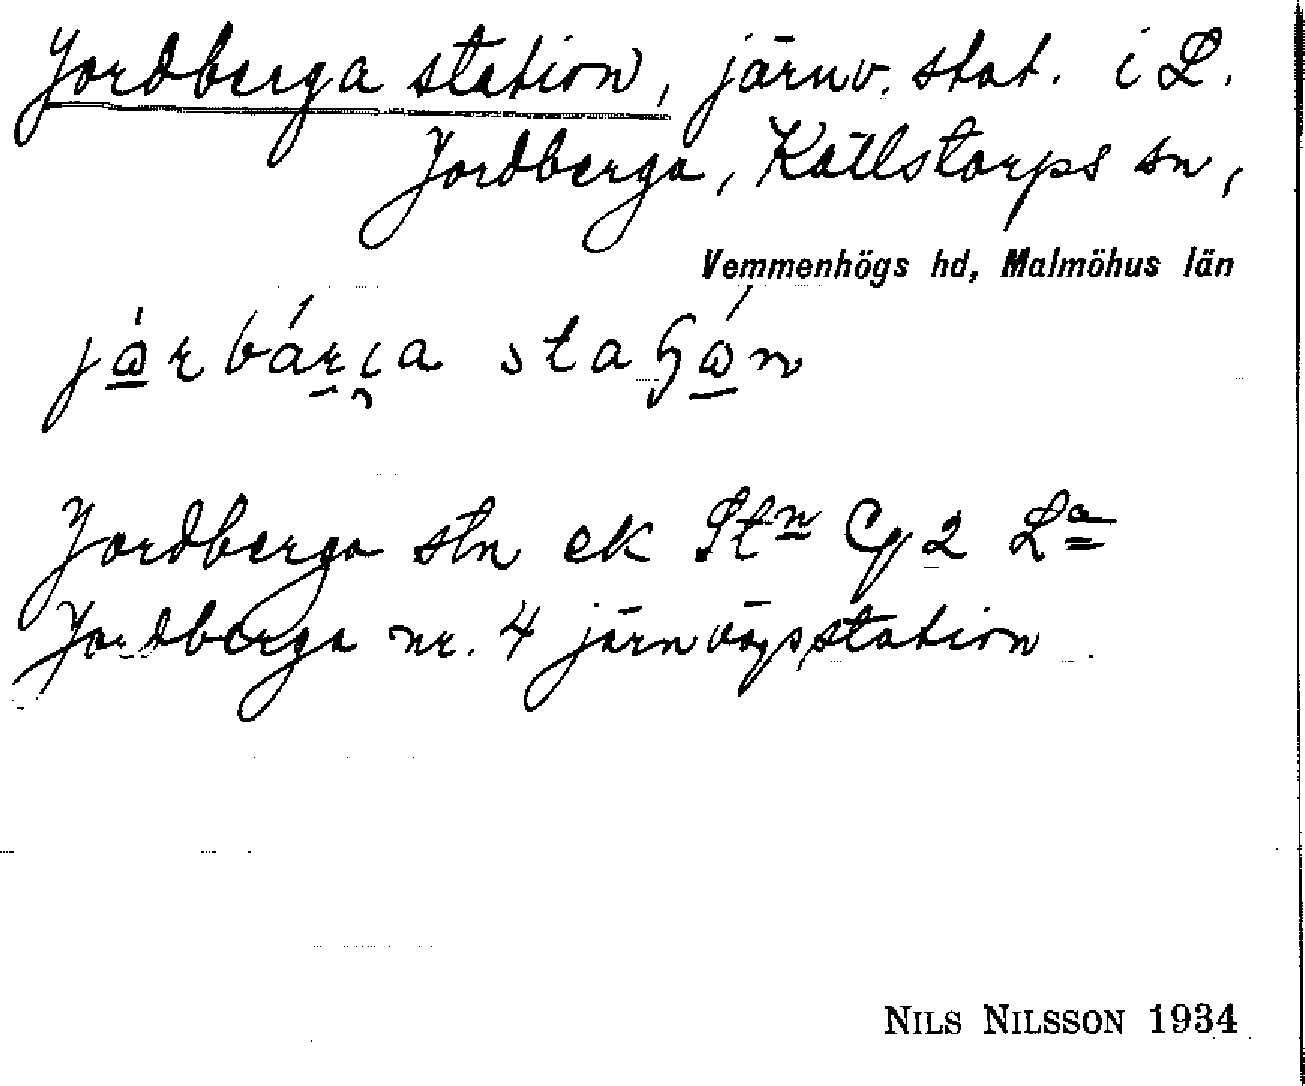 Jordberga station, järnv. stat. i L.
Jordberga, Källstorps sn,
Vemmenhögs hd, Malmöhus län
Jordberga stn ek Stn Cg 2 La
Jordberga nr. 4 järnvägsstation
NILS NILSSON 1934